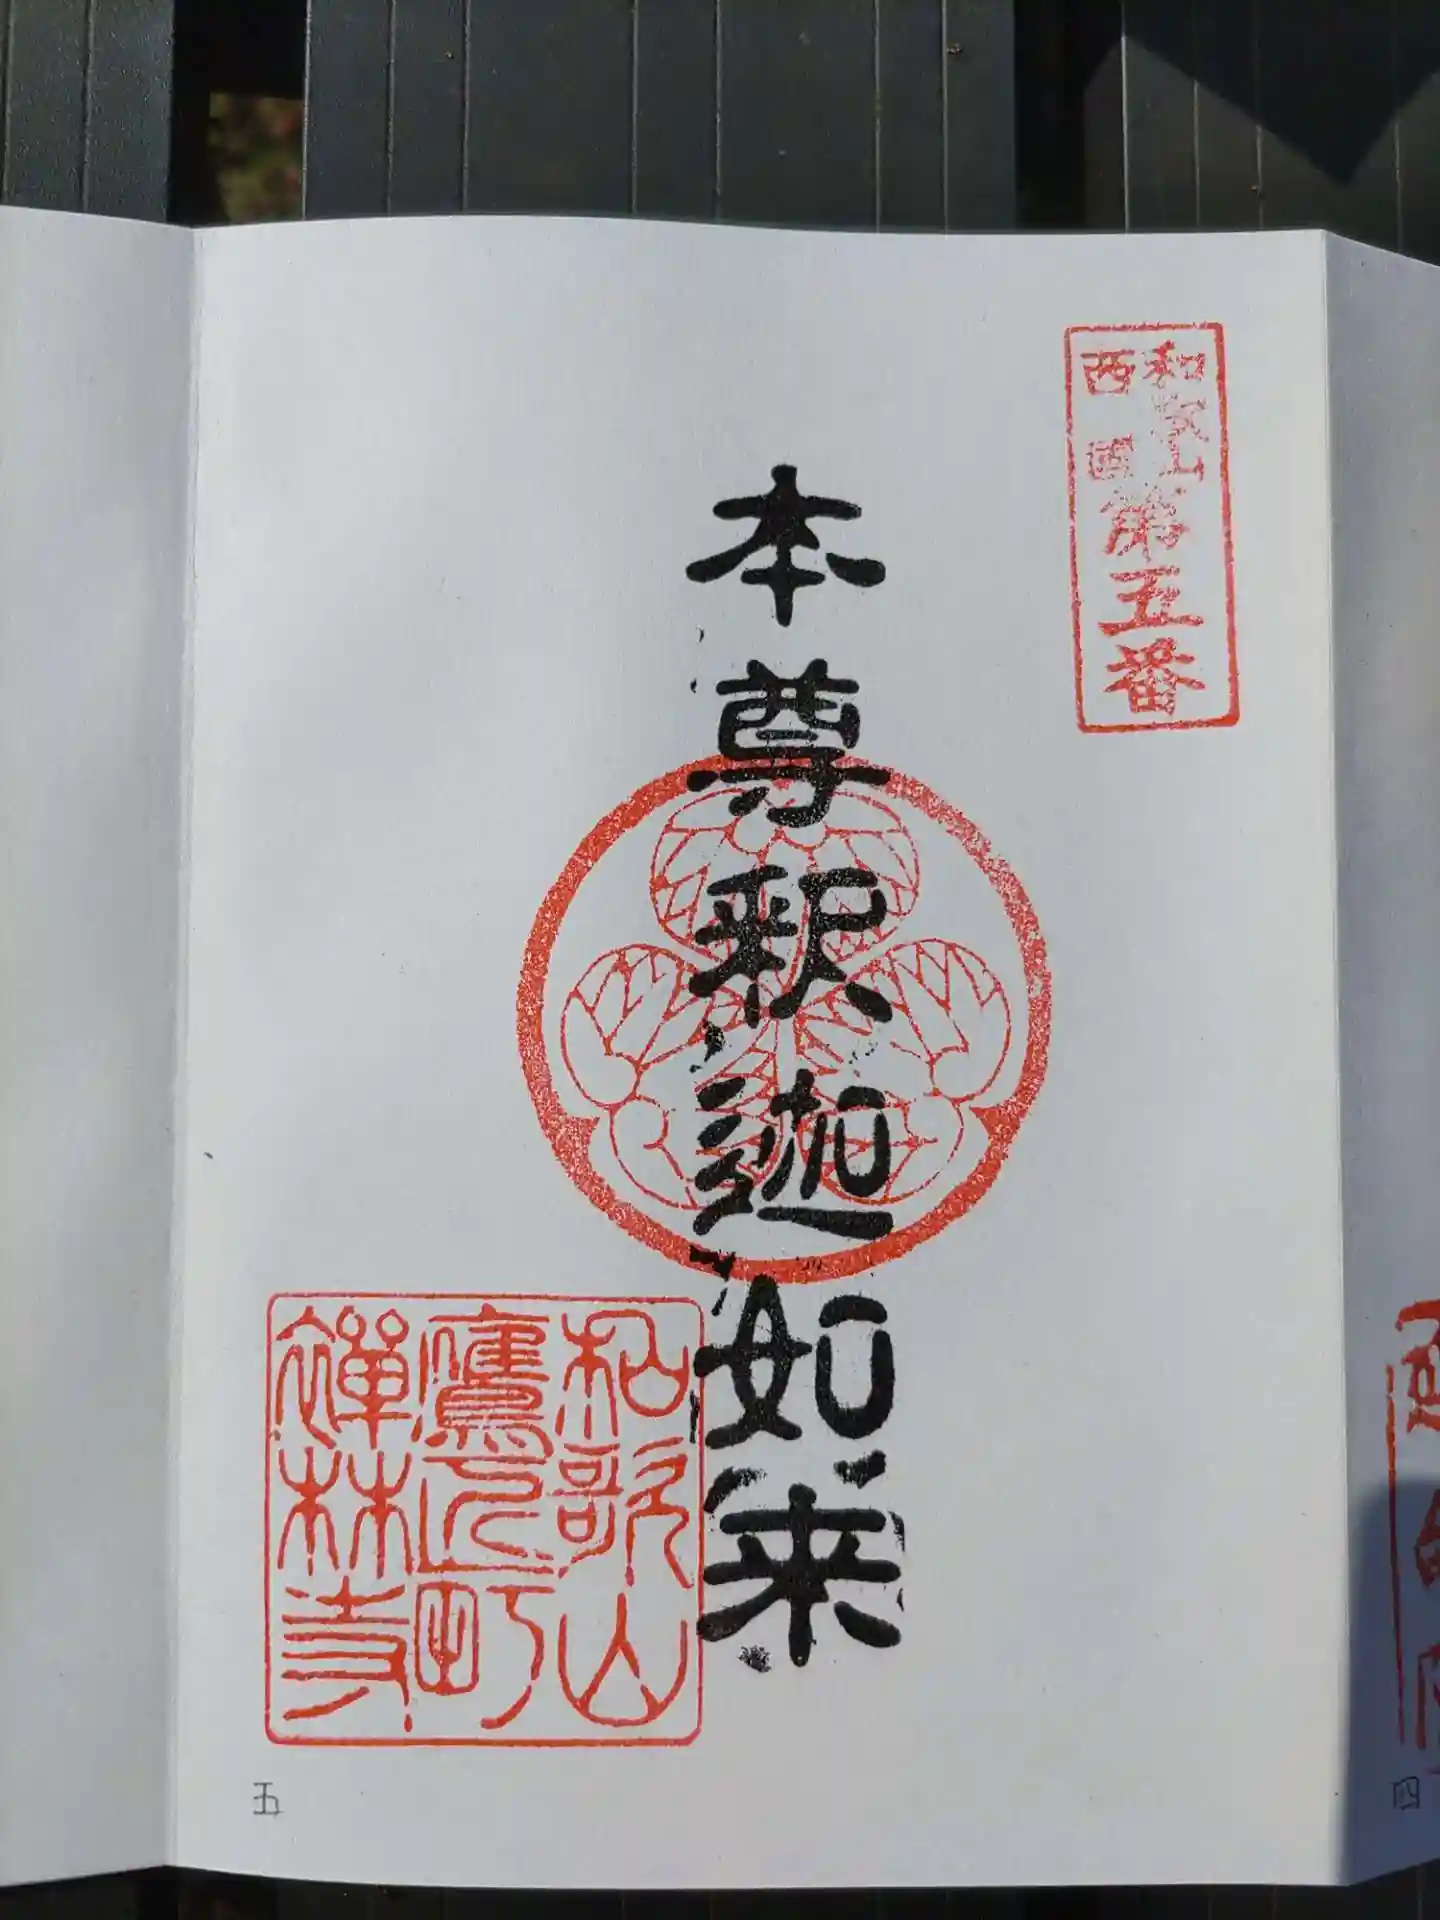 和歌山
西國
第五番
本尊釈迦如来
和歌山
鷹匠町
禅林寺
五
四